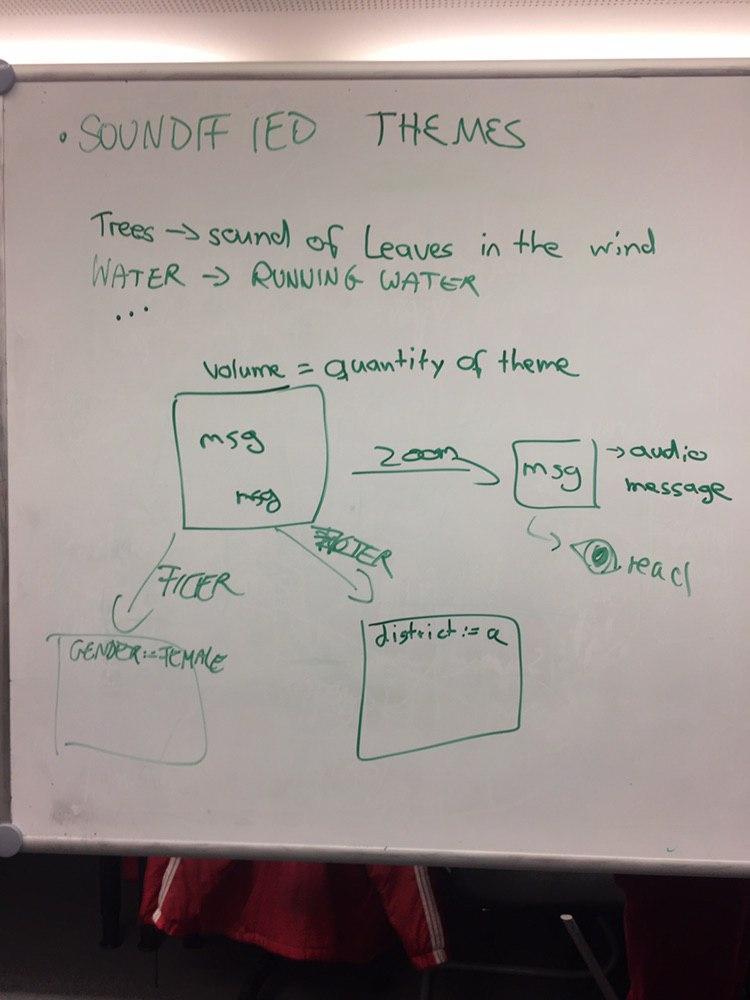 • SOUNDIFIED THEMES
Trees → sound of Leaves in the wind
WATER → RUNNING WATER
...
volume = quantity of theme
msg
msg
zoom
msg
→ audio
message
read
FILTER
GENDER:=FEMALE
district := a